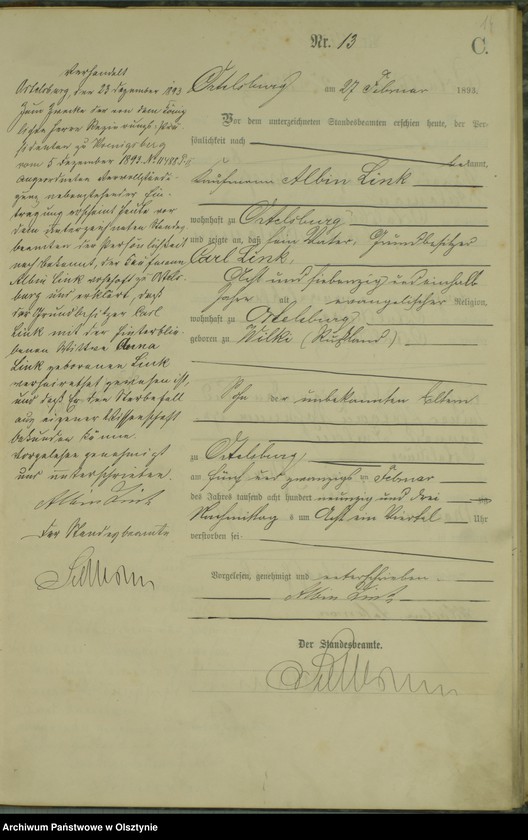 Nr. 13
C.
Ortelsburg am 27 Februar 1893.
Vor dem unterzeichneten Standesbeamten erschien heute, der Per-
sönlichkeit nach
bekannt,
Kaufmann Albin Link
wohnhaft zu Ortelsburg
und zeigte an, daß sein Vater, Grundbesitzer
Carl Link,
Acht und siebenzig und einhalb
Jahre alt evangelischer Religion,
wohnhaft zu Ortelsburg
geboren zu Wilki (Rußland)
Sohn unbekannten Eltern
zu Ortelsburg
am fünf und zwanzigsten Februar
des Jahres tausend acht hundert neunzig und drei
Nachmittag s um Acht ein Viertel Uhr
verstorben sei
Vorgelesen, genehmigt und unterschrieben
Albin Link
Der Standesbeamte.
Verhandelt
Ortelsburg, den 23 Dezember 1893
Zum Zwecke der von dem König
lichen Herrn Regierungs-Prä-
sidenten zu Koenigsberg
vom 5 Dezember 1893
angeordneten Vervollständi-
gung nebenstehender Ein-
tragung erscheint heute vor
dem unterzeichneten Standes
beamten der Persönlichkeit
nach bekannt, der Kaufmann
Albin Link wohnhaft zu Ortels-
burg und erklärt, daß
der Grundbesitzer Carl
Link mit der hinterblie-
benen Wittwe Anna
Link geborenen Link
verheirathet gewesen ist,
und daß er den Sterbefall
aus eigener Wissenschaft
bekunden könne
Vorgelesen genehmigt
und unterschrieben.
Albin Link
Der Standesbeamte
Archiwum Państwowe w Olsztynie